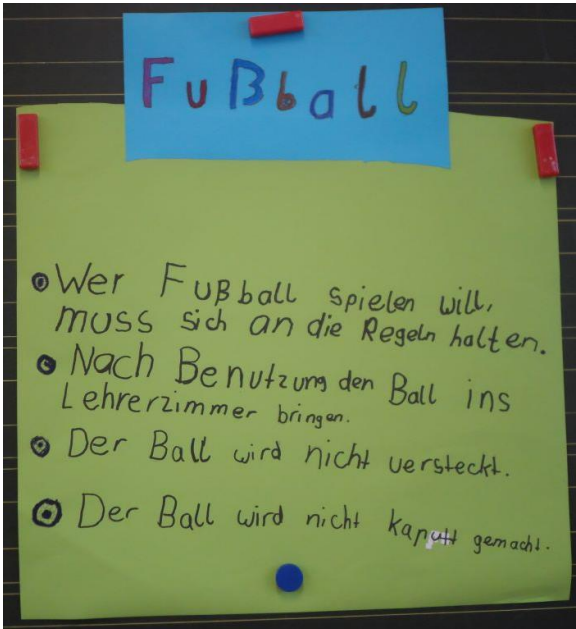 Fußball
Wer Fußball spielen will,
muss sich an die Regeln halten.
Nach Benutzung den Ball ins
Lehrerzimmer bringen.
Der Ball wird nicht versteckt.
Der Ball wird nicht kaputt gemacht.